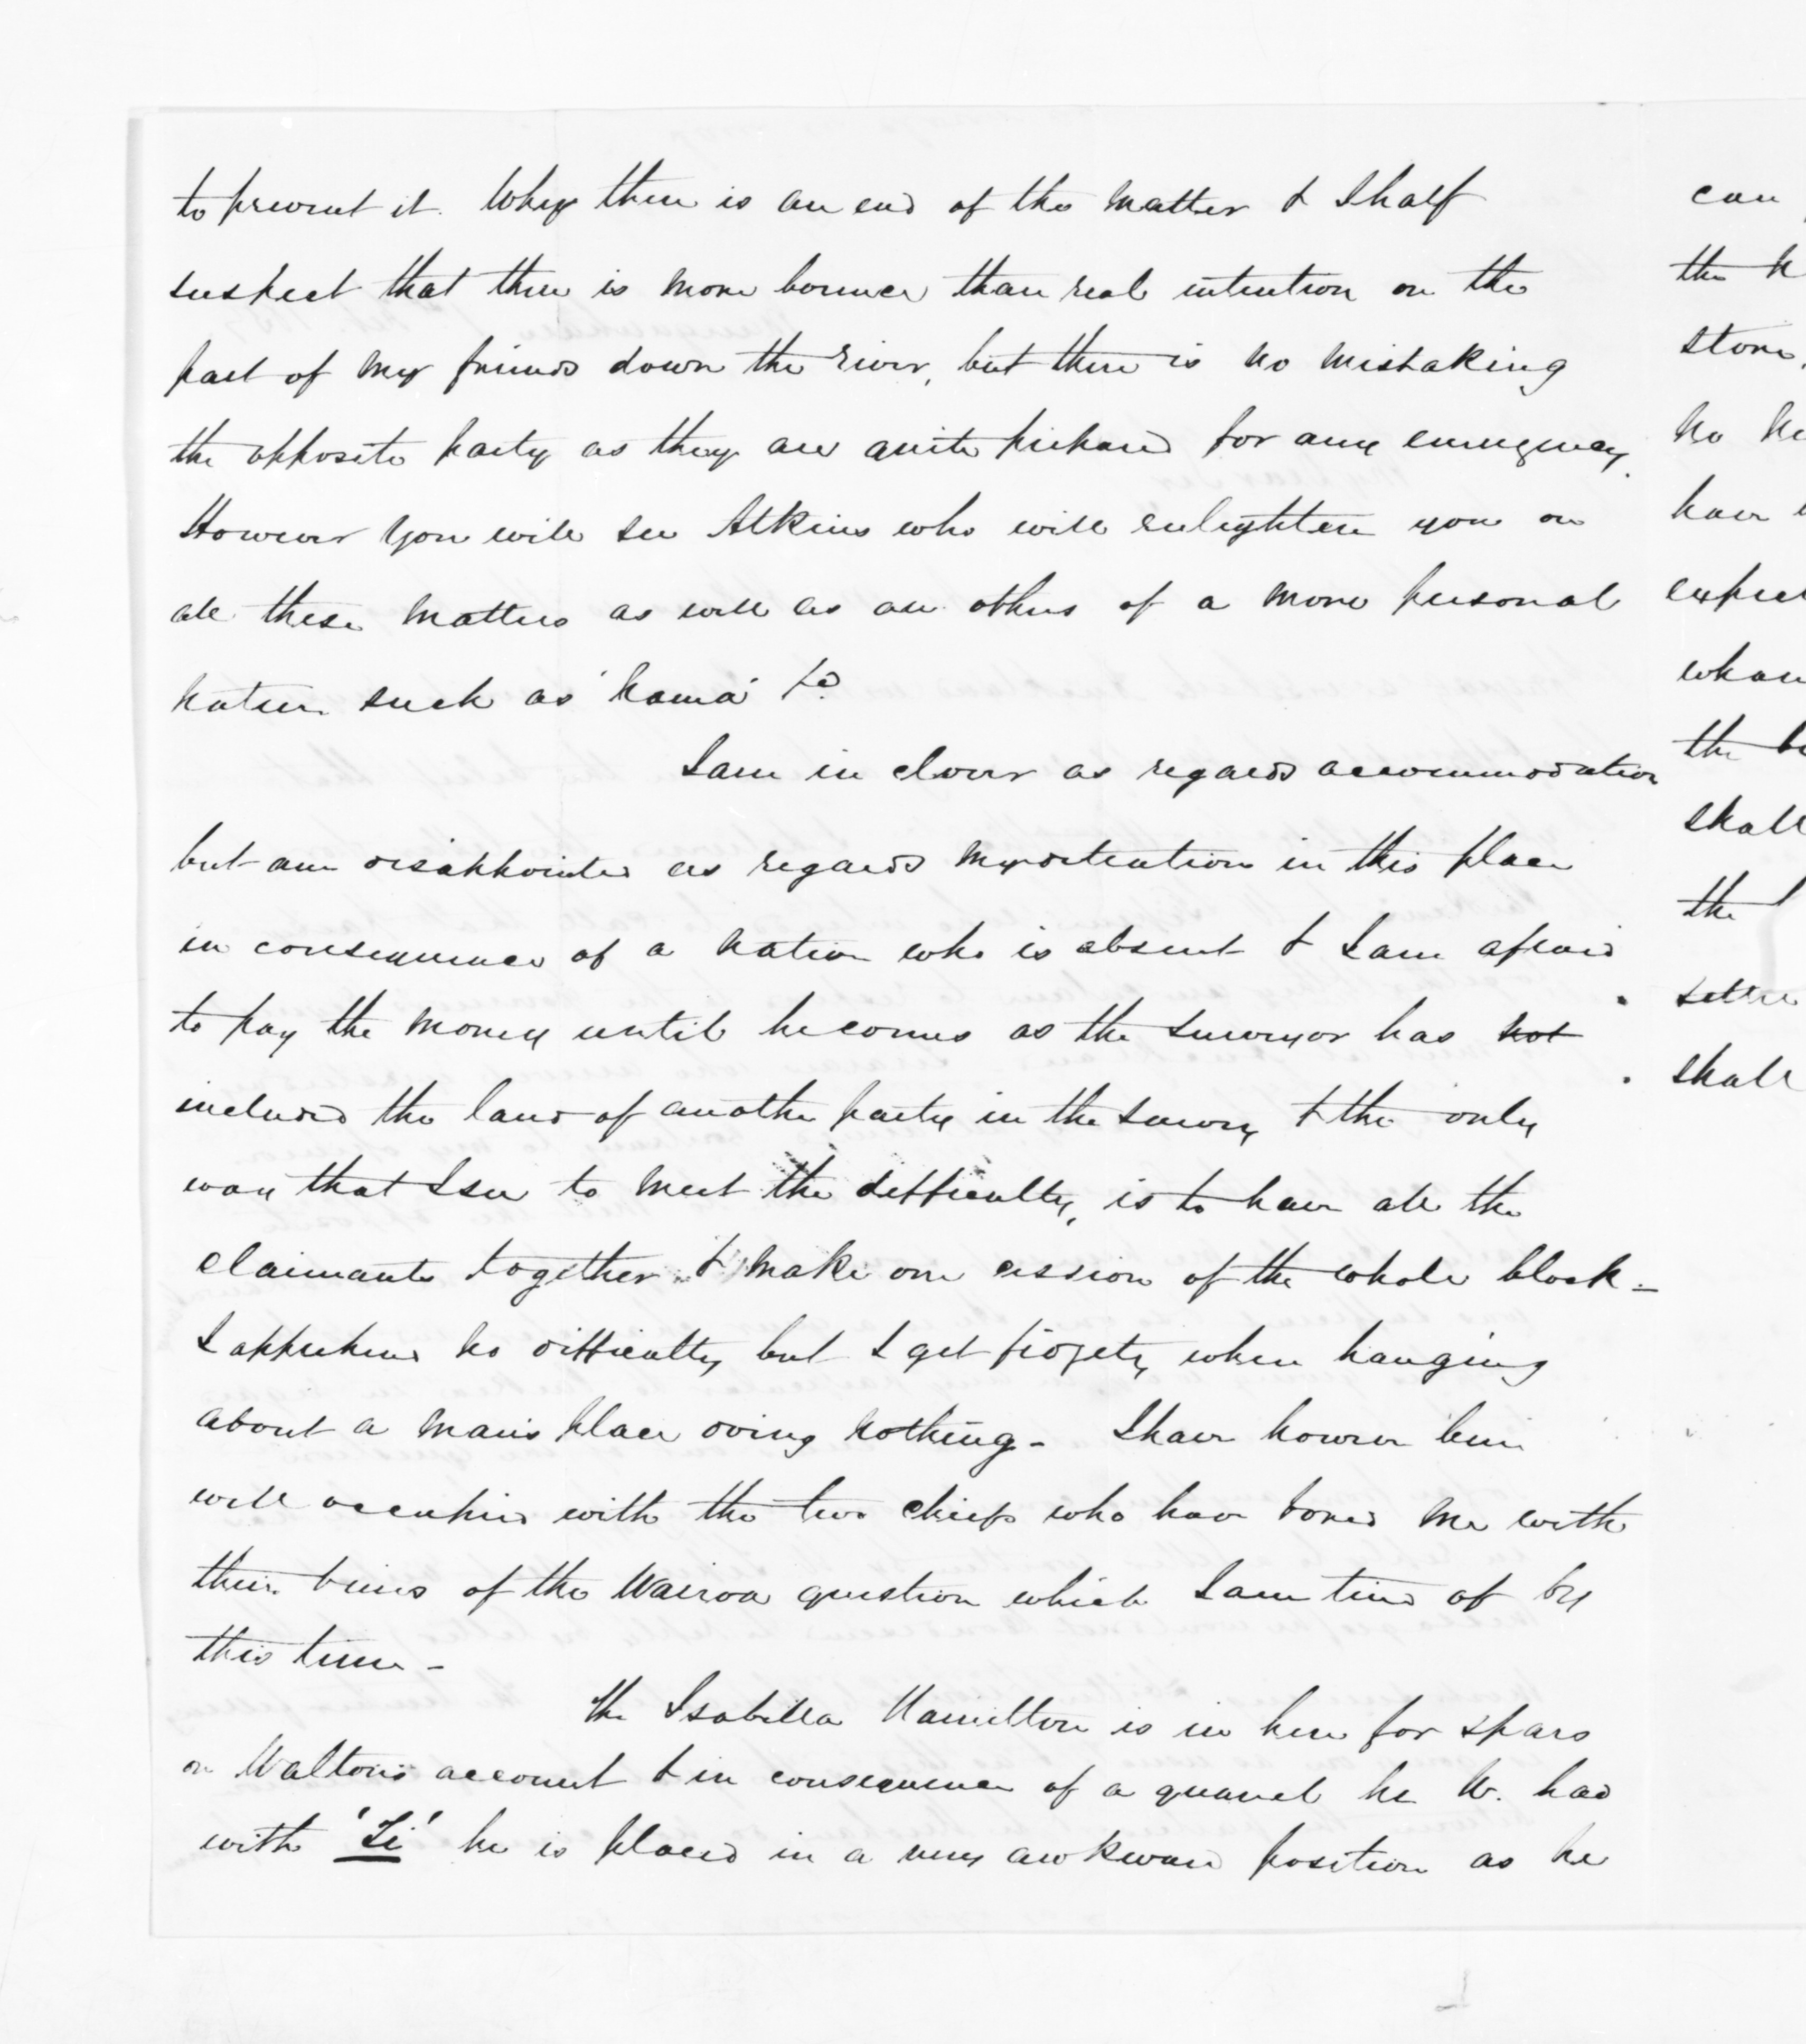 to prevent it. Why there is an end of the matter & I half
suspect that there is more bounce than real intention on the
part of my friends down the river, but there is no mistaking
the opposite party as they are quite prepared for any emergency.
However you will see Atkins who will enlighten you on
all these matters as well as on others of a more personal
nature such as 'hama' &c.
I am in clover as regards accommodation
but am disappointed as regards my detention in this place
in consequence of a native who is absent & I am afraid
to pay the money until he comes as the surveyor has not
included the land of another party in the survey & the only
way that I see to meet the difficulty, is to have all the
claimants together & make one cession of the whole block -
I apprehend no difficulty but I get fidgety when hanging
about a man's place doing nothing - I have however been
well occupied with the two chiefs who have bored me with
their views of the Wairoa question which I am tired of by
this time -
The Isabella Hamilton is in here for spars
on Walton's account & in consequence of a quarrel he W. had
with 'Ti' he is placed in a very awkward position as he
can
the
store,
no
have
the
shall
the
settle
shall